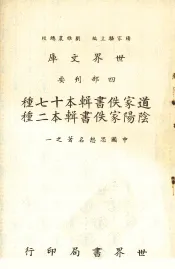 楊家駱主編 劉雅農總校
世界文庫
四部刊要
道家佚書輯本十七種
陰陽家佚書輯本二種
中國思想名著之一
世界書局印行